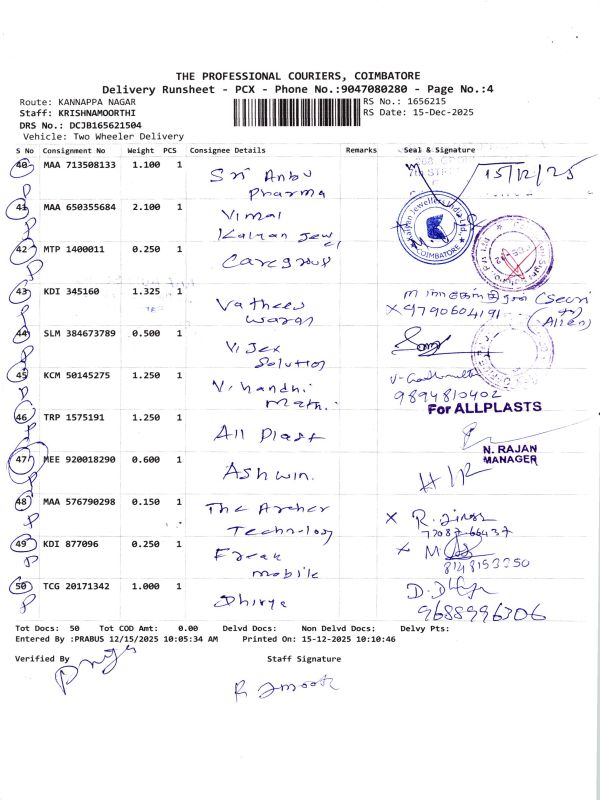 THE PROFESSIONAL COURIERS, COIMBATORE
Delivery Runsheet - PCX - Phone No.:9047080280 - Page No.:4
Route: KANNAPPA NAGAR
RS No.: 1656215
Staff: KRISHNAMOORTHI
RS Date: 15-Dec-2025
DRS No.: DCJB165621504
Vehicle: Two Wheeler Delivery
S No Consignment No Weight PCS Consignee Details Remarks Seal & Signature
40 MAA 713508133 1.100 1 Sri Anbu Pharma 15/12/25
41 MAA 650355684 2.100 1 Vimal Kalyan Jewel
Kalyan Jewellers India Ltd.
COIMBATORE
42 MTP 1400011 0.250 1 Caregroup
43 KDI 345160 1.325 1
X 9790604191
44 SLM 384673789 0.500 1 Vijex Solution
45 KCM 50145275 1.250 1
9894810402
For ALLPLASTS
46 TRP 1575191 1.250 1 All Plast
N. RAJAN
MANAGER
47 MEE 920018290 0.600 1 Ashwin.
H/R
48 MAA 576790298 0.150 1 The Archer Technology
X R.
77087 66437
49 KDI 877096 0.250 1 Freak mobile
X
8148153350
50 TCG 20171342 1.000 1 Dhivya
9688996306
Tot Docs: 50 Tot COD Amt: 0.00 Delvd Docs: Non Delvd Docs: Delvy Pts:
Entered By :PRABUS 12/15/2025 10:05:34 AM Printed On: 15-12-2025 10:10:46
Verified By Staff Signature